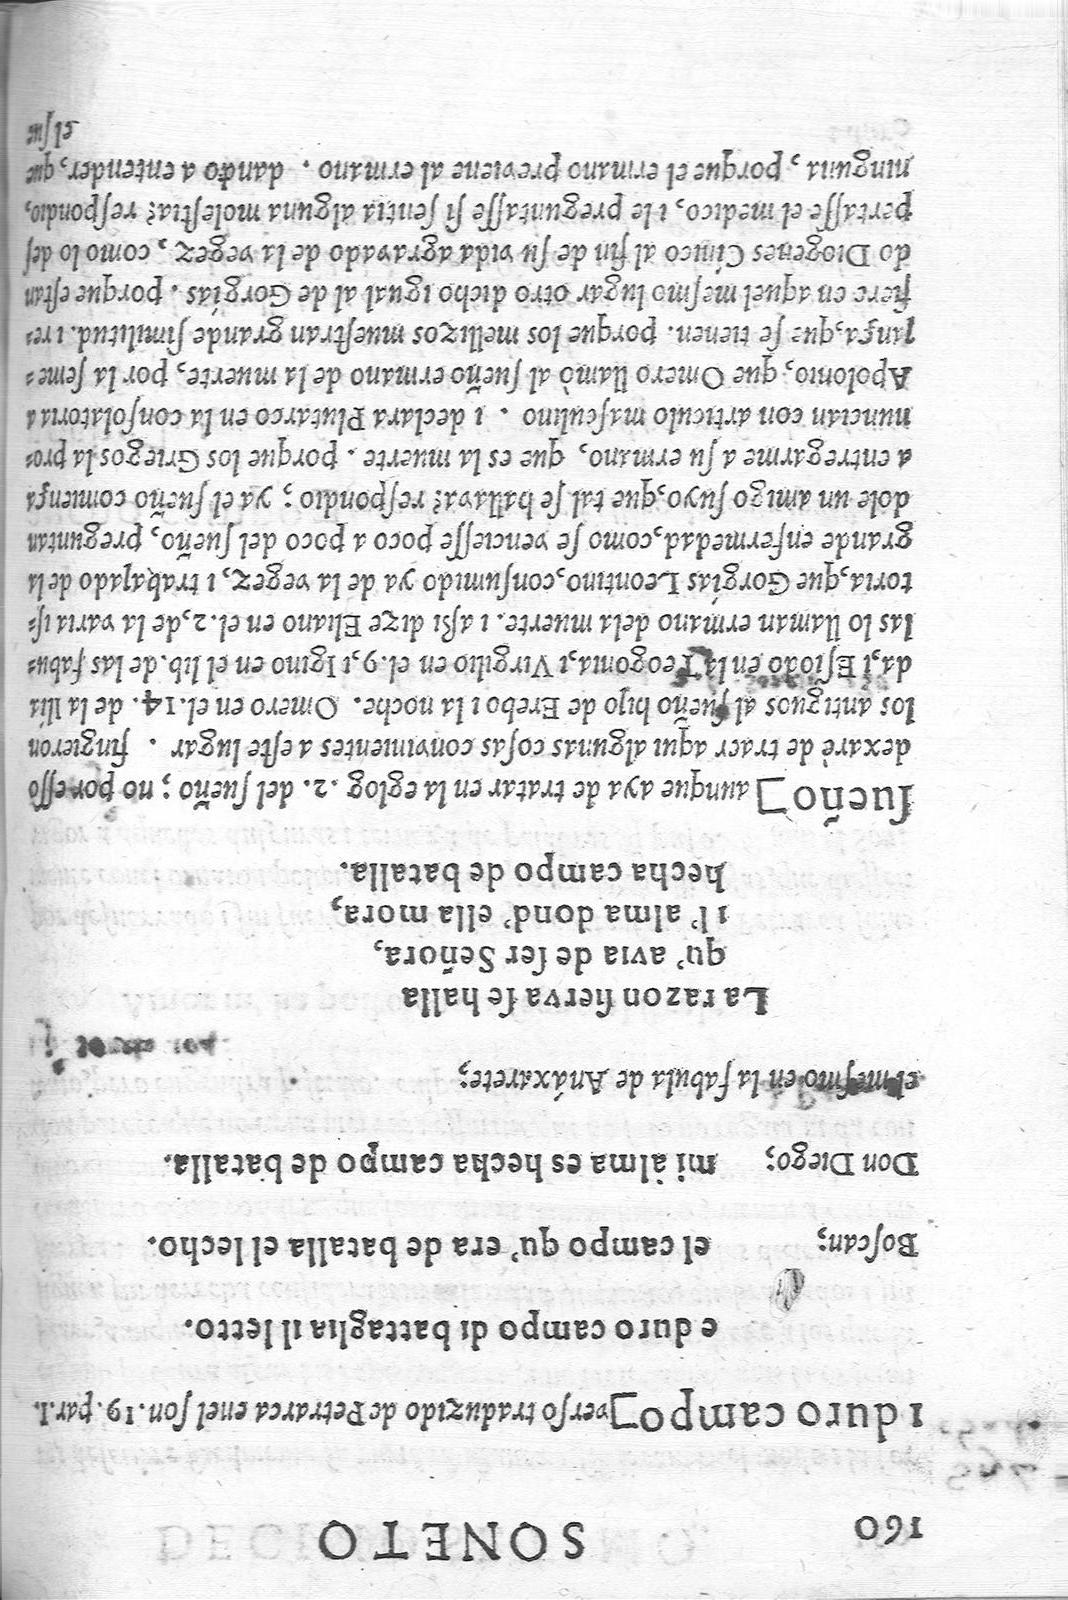 160
SONETO
ı duro campo] verso traduzido de Petrarca en el son. 19. par. 1.
e duro campo di battaglia il letto.
Boscan; el campo qu' era de batalla el lecho.
Don Diego; mi alma es hecha campo de batalla.
el mesmo en la fabula de Anáxarete;
La razon sierva se halla
qu' avia de ser Señora,
ı l' alma dond' ella mora,
hecha campo de batalla.
sueño] aunque aya de tratar en la eglog. 2. del sueño; no por esso
dexarè de traer aqui algunas cosas convinientes a este lugar. fingieron
los antiguos al sueño hijo de Erebo i la noche. Omero en el. 14. de la Ilia
da, i Esiodo en la Teogonia, i Virgilio en el. 9, i Igino en el lib. de las fabu-
las lo llaman ermano dela muerte. i assi dize Eliano en el. 2, de la varia is-
toria, que Gorgias Leontino, consumido ya de la vegez, i trabajado de la
grande enfermedad, como se venciesse poco a poco del sueño, preguntan
dole un amigo suyo, que tal se hallava? respondio; ya el sueño comiença
a entregarme a su ermano, que es la muerte. porque los Griegos la pro-
nuncian con articulo masculino. i declara Plutarco en la consolatoria a
Apolonio, que Omero llamò al sueño ermano de la muerte, por la seme-
jança, que se tienen. porque los mellizos muestran grande similitud. i re-
fiere en aquel mesmo lugar otro dicho igual al de Gorgias. porque estan
do Diogenes Cinico al fin de su vida agravado de la vegez, como lo des
pertasse el medico, i le preguntasse si sentia alguna molestia? respondio,
ninguna, porque el ermano previene al ermano. dando a entender, que
el sue